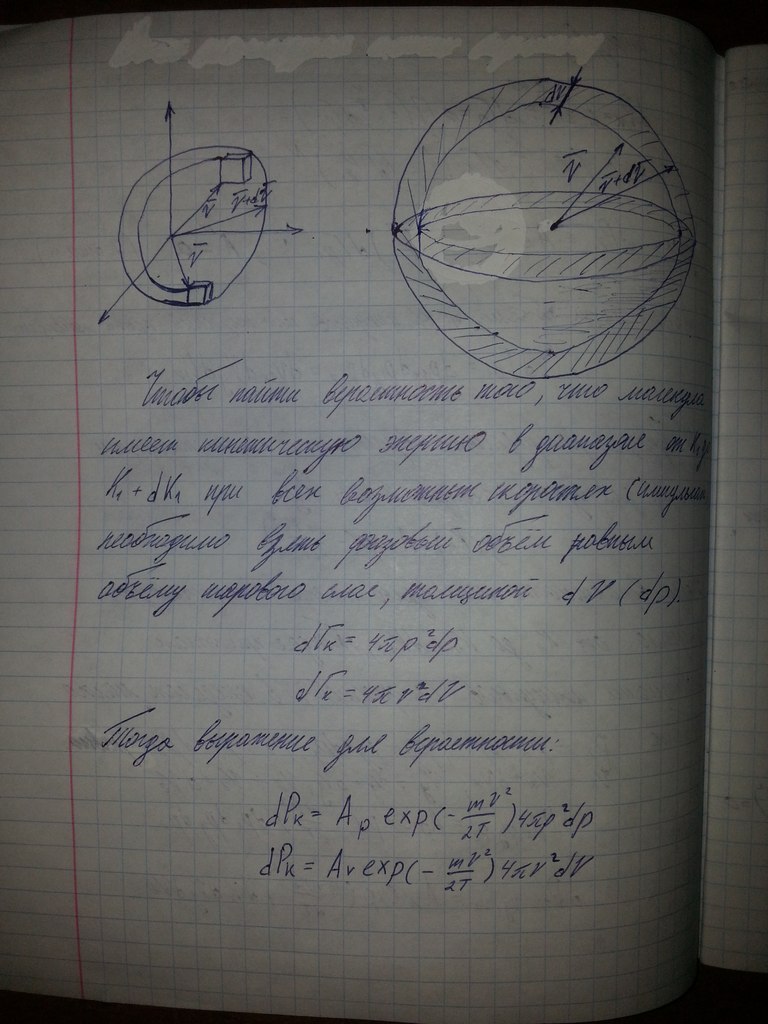 V̄
V̄+dV̄
V̄
dV
V̄
V̄+dV̄
Чтобы найти вероятность того, что молекула
имеет кинетическую энергию в диапазоне от K₁ до
K₁ + dK₁ при всех возможных скоростях (импульсах
необходимо взять фазовый объём равным
объёму шарового слоя, толщиной dV (dp).
dГк = 4πp²dp
dГк = 4πV²dV
Тогда выражение для вероятности:
dPк = Aₚ exp(-mV²/2T)4πp²dp
dPк = Aᵥ exp(-mV²/2T)4πV²dV